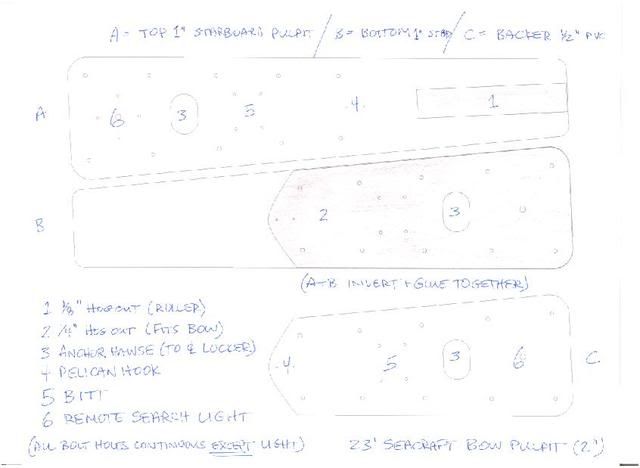 A = TOP 1" STARBOARD PULPIT / B = BOTTOM 1" STAR / C = BACKER 1/2" PVC
A
6 3 5 4 1
B
2 3
(A-B INVERT + GLUE TOGETHER)
1 HOG OUT (ROLLER)
2 HOG OUT (FITS BOW)
3 ANCHOR HAWSE (TO LOCKER)
4 PELICAN HOOK
5 BITT
6 REMOTE SEARCH LIGHT
(ALL BOLT HOLES CONTINUOUS EXCEPT LIGHT)
4 5 3 6
C
23' SEACRAFT BOW PULPIT (2")